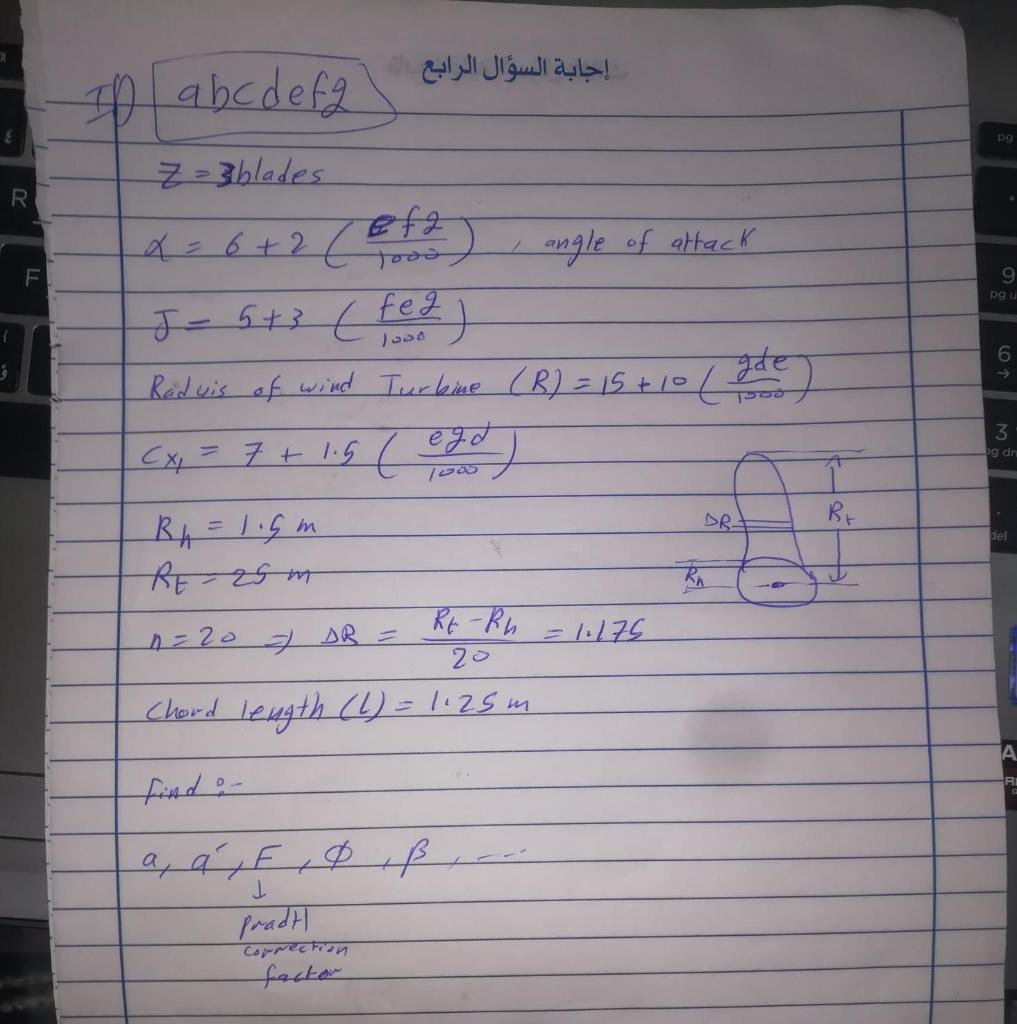 إجابة السؤال الرابع
ID abcdefg
Z = 3blades
α = 6 + 2 ( efg / 1000 ) , angle of attack
J = 5 + 3 ( feg / 1000 )
Raduis of wind Turbine (R) = 15 + 10 ( gde / 1000 )
Cx1 = 7 + 1.5 ( egd / 1000 )
Rh = 1.5 m
Rt = 25 m
n = 20 ⇒ ΔR = Rt - Rh / 20 = 1.175
Chord length (L) = 1.25 m
ΔR
Rt
Rh
Find :-
a, a', F, Φ, β, ---
↓
pradtl
correction
factor
R
F
pg
9
pg u
6
→
3
pg dn
.
del
A